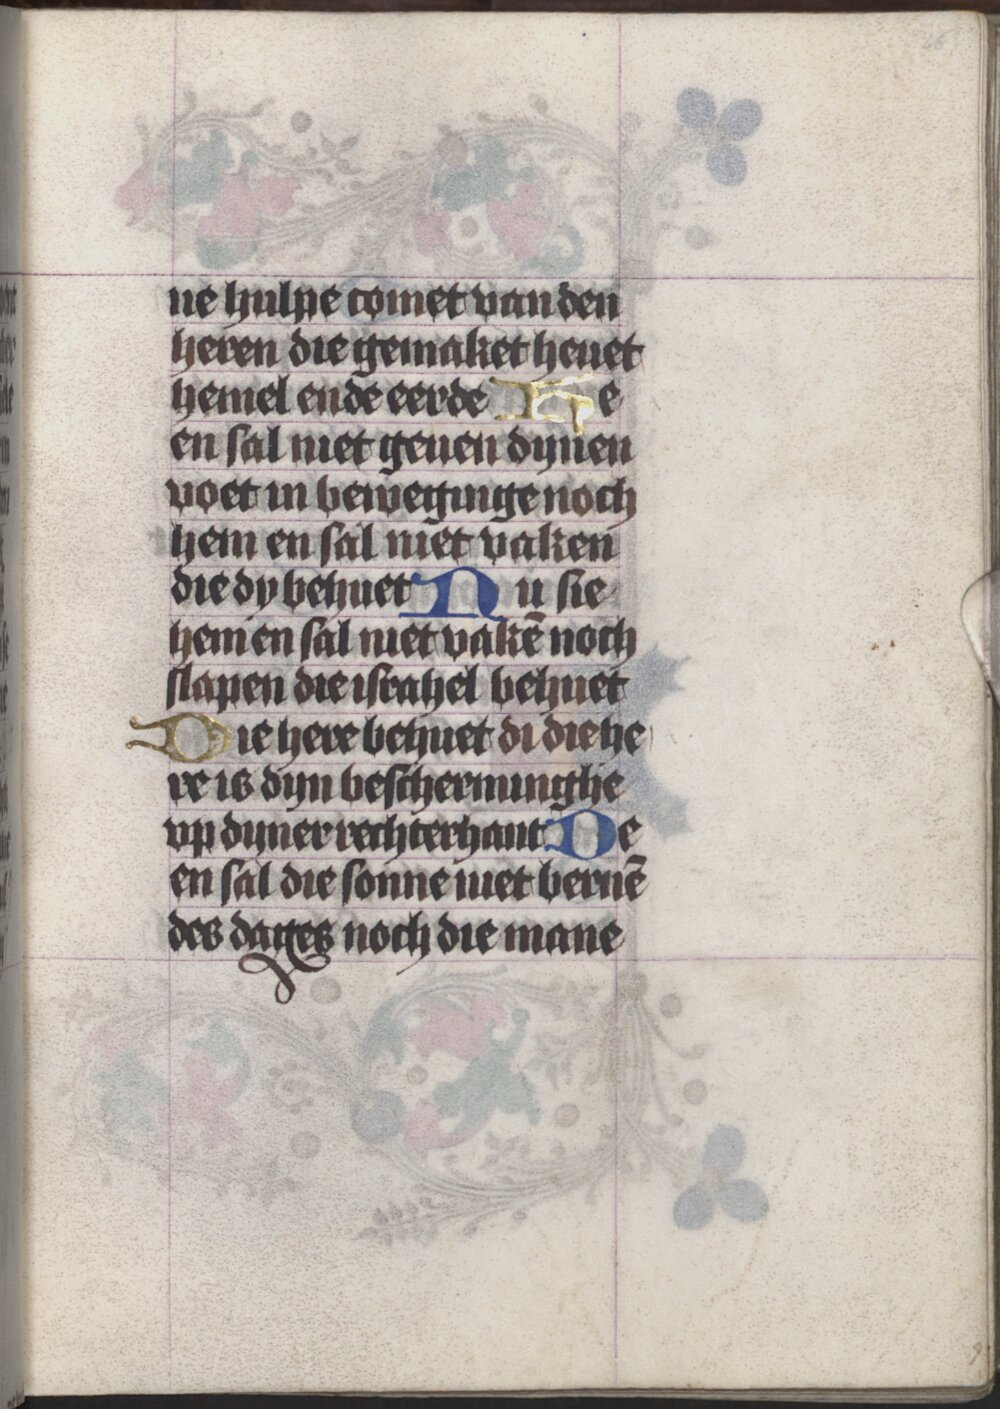 ne hulpe comet van den
heren die gemaket heuet
hemel ende eerde He
en sal niet geuen dynen
voet in beweginge noch
hem en sal niet vaken
die dy behuet Nu sie
hem en sal niet vakē noch
slapen die israhel behuet
Die here behuet di die he
re is dyn bescherminghe
vp dyner rechterhant De
en sal die sonne niet bernē
des dages noch die mane